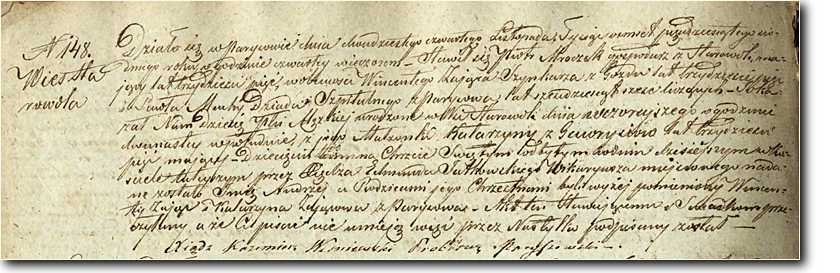 N 148.
Wieś Sta
rowola
Działo się w Parysowie dnia dwudziestego czwartego Listopada Tysiąc ośmset pięćdziesiątego sió-
dmego roku o godzinie czwartej wieczorem. Stawił się Piotr Mroczek gospodarz z Starowoli, ma-
jący lat trzydzieści pięć, w obecności Wincentego Zająca Szynkarza z lat trzydzieści
i Pawła Muchy Dziada Szpitalnego z Parysowa lat sześćdziesiąt sześć liczących Oka
zał Nam dziecię Płci Męzkiej urodzone w Wsi Starowoli dnia wczorajszego o godzinie
dwunastej w południe, z jego Małżonki Katarzyny z lat trzydzieści
pięć mającej Dziecięciu temu na Chrzcie Świętym odbytym w dniu dzisiejszym w Ko
ściele tutejszym przez Księdza Edmunda Wikaryusza miejscowego nada
ne zostało Imię Andrzej a Rodzicami jego Chrzestnemi byli wyżej pomieniony Wincen-
ty Zając i Katarzyna z Parysowa. Akt ten Stawającemu i Świadkom prze
czytany a że Ci pisać nie umieją więc przez Nas tylko podpisany został
Ksiądz Kazimierz Proboszcz Parysowski.